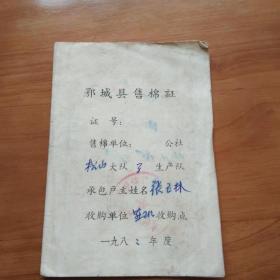 郓城县售棉证
证 号:
售棉单位: 公社
松山大队 3 生产队
承包户主姓名 张玉林
收购单位 收购点
一九八三年度